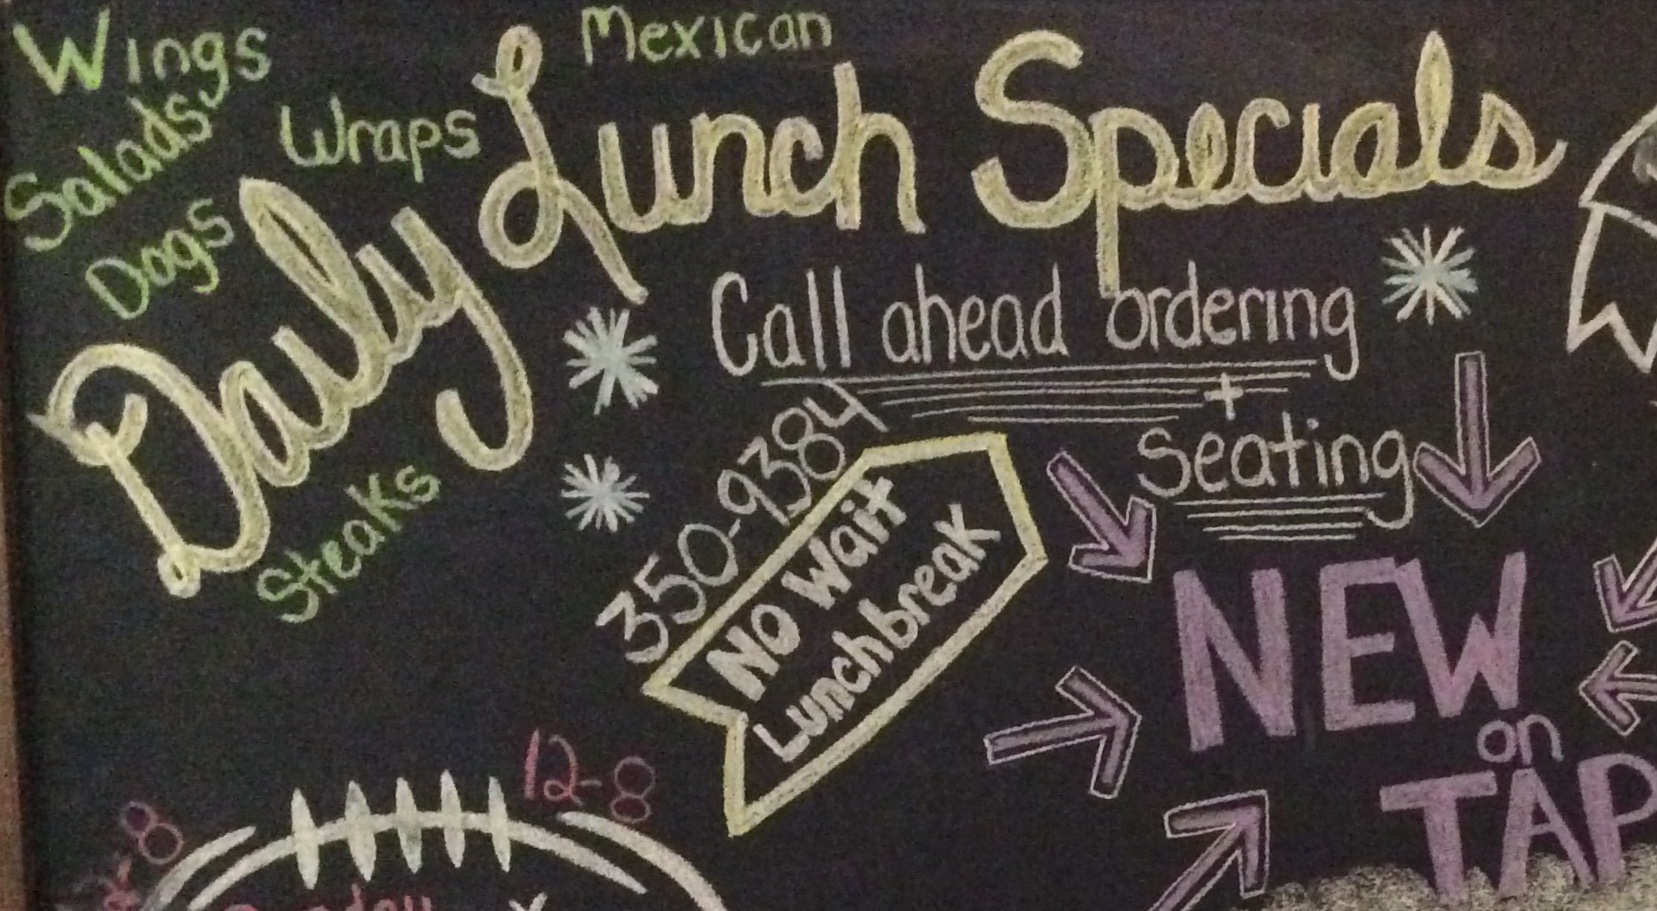 Wings
Mexican
Salads
Wraps
Dogs
Daily Lunch Specials
Steaks
Call ahead ordering
+
Seating
350-9384
No Wait
Lunchbreak
NEW
on
TAP
12-8